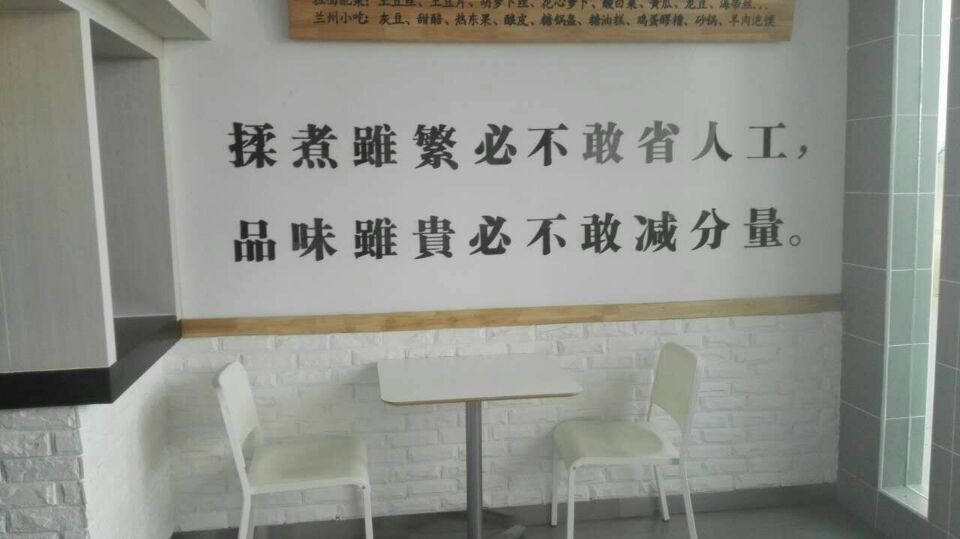 拉面配菜：土豆丝、土豆片、胡萝卜丝、花心萝卜、酸白菜、黄瓜、龙豆、海带丝...
兰州小吃：灰豆、甜醅、热东果、酿皮、糖锅盔、糖油糕、鸡蛋醪糟、砂锅、羊肉泡馍
揉煮雖繁必不敢省人工，
品味雖貴必不敢减分量。